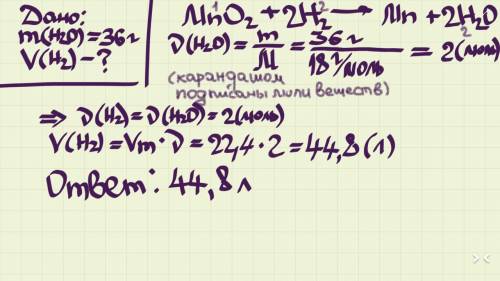 Дано:
m(H2O)=36г
V(H2)-?
MnO2 + 2H2 → Mn + 2H2O
1 2 2
ν(H2O) = m/M = 36г/18г/моль = 2(моль)
(карандашом
подписаны моли веществ)
⇒ ν(H2)=ν(H2O)=2(моль)
V(H2)=Vm·ν=22,4·2=44,8(л)
Ответ: 44,8л